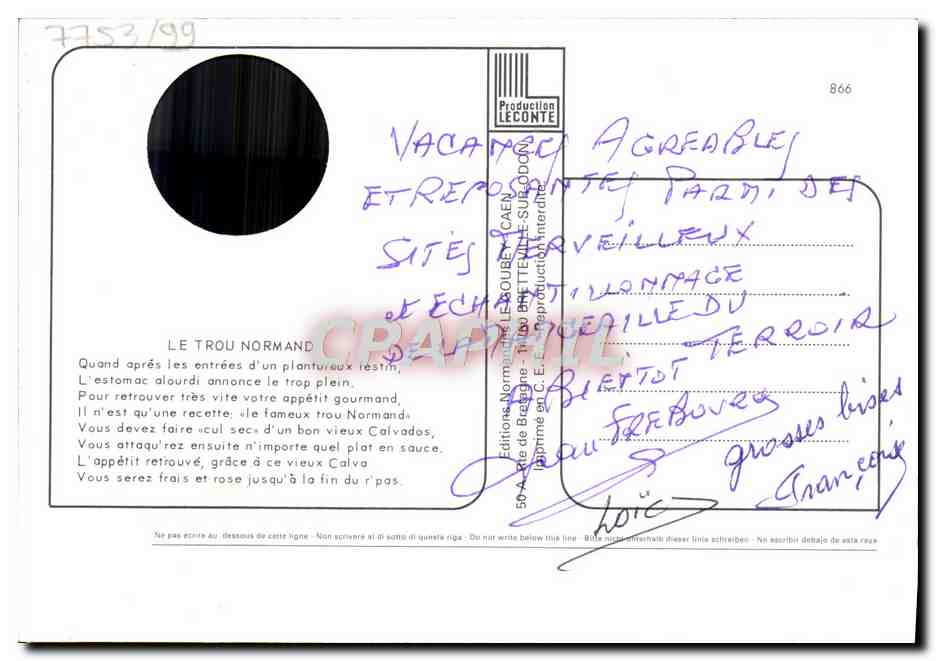 7753/99
866
Production
LECONTE
VACANCES AGREABLES
ET REPOSANTES PARMI DES
SITES MERVEILLEUX
et ECHANTILLONNAGE
DE LA DU
TERROIR
A BIENTOT
Jean FREBOURG
grosses bises
Françoise
Loïc
LE TROU NORMAND
Quand aprés les entrées d'un plantureux festin,
L'estomac alourdi annonce le trop plein.
Pour retrouver très vite votre appétit gourmand,
Il n'est qu'une recette: «le fameux trou Normand»
Vous devez faire «cul sec» d'un bon vieux Calvados,
Vous attaqu'rez ensuite n'importe quel plat en sauce.
L'appétit retrouvé, grâce à ce vieux Calva
Vous serez frais et rose jusqu'à la fin du r'pas.
Editions Normandes LE GOUBEY - CAEN
50 A, Rte de Bretagne - BRETTEVILLE-SUR-ODON
Imprimé en C.E.E. - Reproduction interdite
CPARAMA
Ne pas écrire au dessous de cette ligne - Non scrivere al di sotto di questa riga - Do not write below this line - Bitte nicht unterhalb dieser linie schreiben - No escribir debajo de esta raya